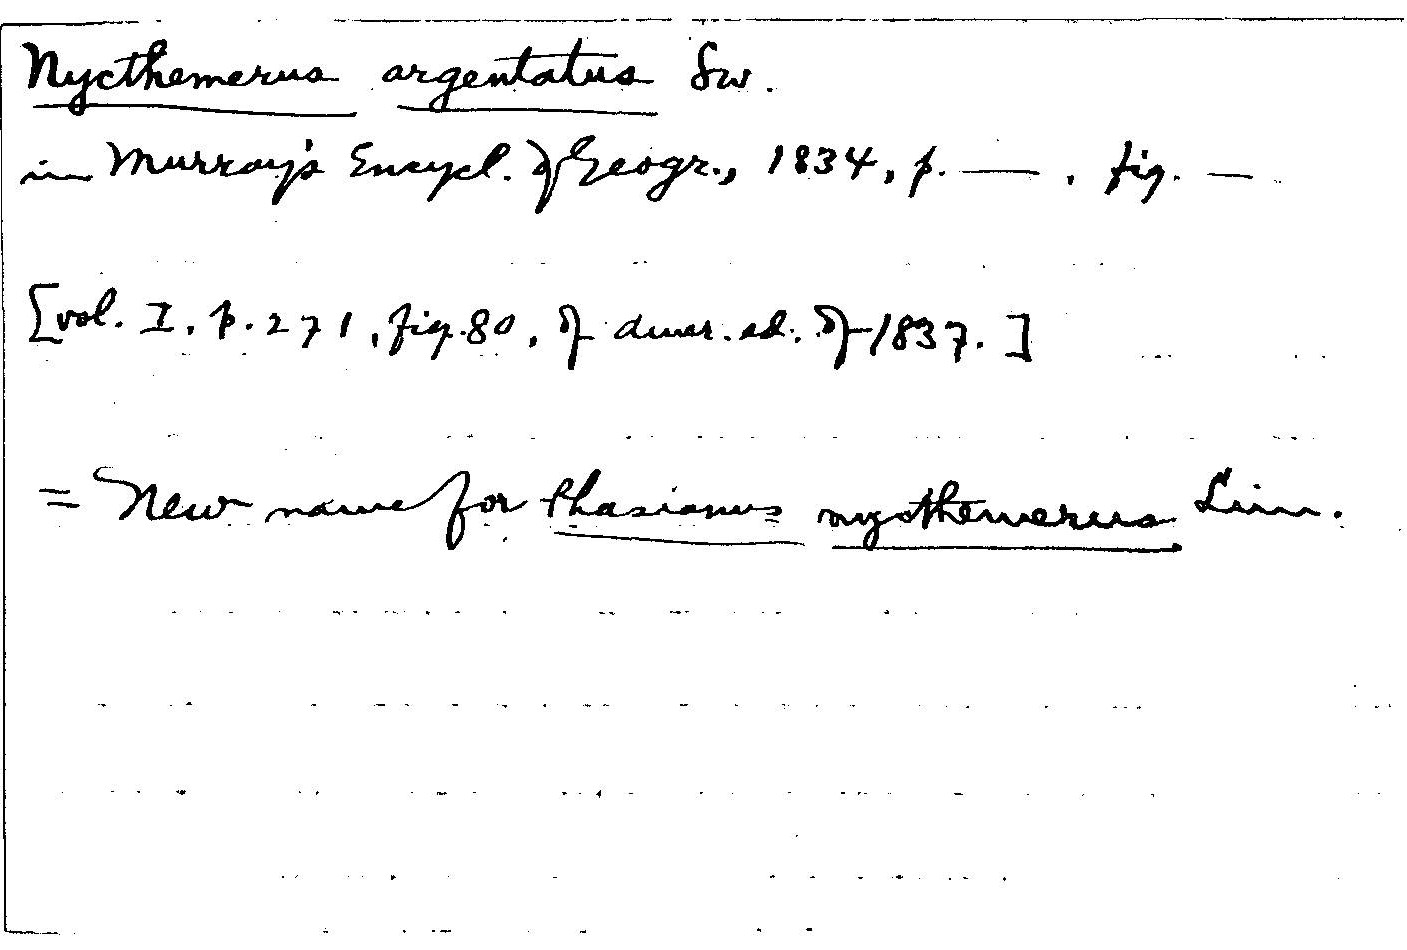 Nycthemerus argentatus Sw.
in Murray's Encycl. of Geogr., 1834, p. —. fig. —
[vol. I, p. 271, fig. 80, of Amer. ed. of 1837.]
= New name for Phasianus nycthemerus Linn.